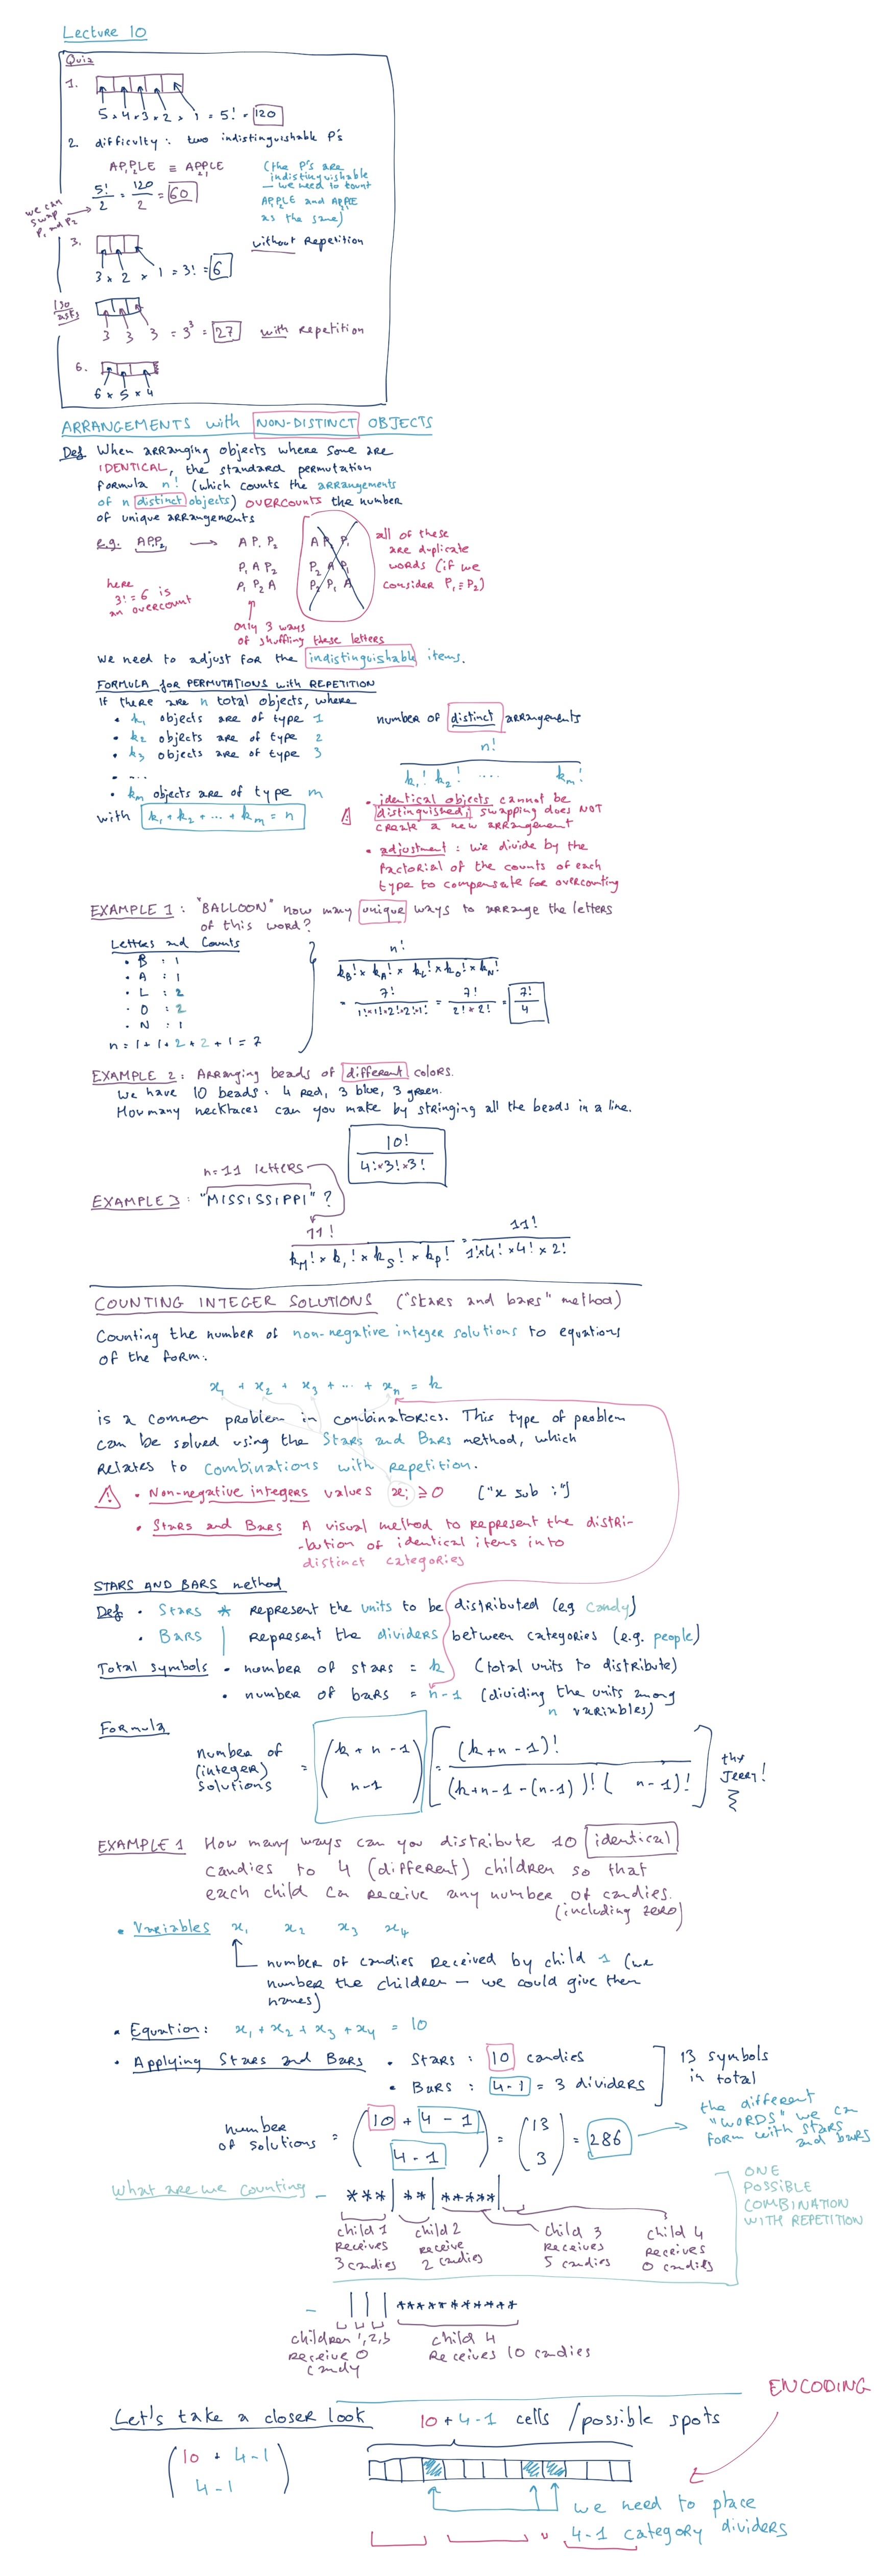 Lecture 10
Quiz
1.
5 × 4 × 3 × 2 × 1 = 5! = 120
2. difficulty: two indistinguishable P's
AP₁P₂LE ≡ AP₂P₁LE
(the P's are
indistinguishable
– we need to count
AP₁P₂LE and AP₂P₁LE
as the same)
5!/2 = 120/2 = 60
we can
swap
P₁ and P₂
3.
without Repetition
3 × 2 × 1 = 3! = 6
3 3 3 = 3³ = 27 with repetition
6.
6 × 5 × 4
ARRANGEMENTS with NON-DISTINCT OBJECTS
Def When arranging objects where some are
IDENTICAL, the standard permutation
formula n! (which counts the arrangements
of n distinct objects) overcounts the number
of unique arrangements
e.g. AP₁P₂ → A P₁ P₂ A P₂ P₁
P₁ A P₂ P₂ A P₁
P₁ P₂ A P₂ P₁ A
all of these
are duplicate
words (if we
consider P₁ = P₂)
here
3! = 6 is
an overcount
only 3 ways
of shuffling these letters
We need to adjust for the indistinguishable items.
FORMULA for PERMUTATIONS with REPETITION
If there are n total objects, where
• k₁ objects are of type 1
• k₂ objects are of type 2
• k₃ objects are of type 3
• ....
• kₘ objects are of type m
with k₁ + k₂ + ... + kₘ = n
number of distinct arrangements
n!
k₁! k₂! .... kₘ!
• identical objects cannot be
distinguished; swapping does NOT
create a new arrangement
• adjustment: we divide by the
factorial of the counts of each
type to compensate for overcounting
EXAMPLE 1: "BALLOON" how many unique ways to arrange the letters
of this word?
Letters and Counts
• B : 1
• A : 1
• L : 2
• O : 2
• N : 1
n = 1 + 1 + 2 + 2 + 1 = 7
n!
k_B! × k_A! × k_L! × k_O! × k_N!
= 7!/1!×1!×2!×2!×1! = 7!/2! × 2! = 7!/4
EXAMPLE 2: Arranging beads of different colors.
We have 10 beads: 4 red, 3 blue, 3 green.
How many necklaces can you make by stringing all the beads in a line.
10!
4!×3!×3!
n = 11 letters
EXAMPLE 3: "MISSISSIPPI"?
11!/k_M! × k_I! × k_S! × k_P! = 11!/1!×4! × 4! × 2!
COUNTING INTEGER SOLUTIONS ("stars and bars" method)
Counting the number of non-negative integer solutions to equations
of the form:
x₁ + x₂ + x₃ + ... + xₙ = k
is a common problem in combinatorics. This type of problem
can be solved using the Stars and Bars method, which
relates to combinations with repetition.
• Non-negative integers values xᵢ ≥ 0 ("x sub i")
• Stars and Bars A visual method to represent the distri-
-bution of identical items into
distinct categories
STARS AND BARS method
Def • Stars * represent the units to be distributed (eg candy)
• Bars | represent the dividers between categories (e.g. people)
Total symbols • number of stars = k (total units to distribute)
• number of bars = n-1 (dividing the units among
n variables)
Formula
number of
(integer)
solutions
= (k + n - 1 / n-1) [= (k+n-1)! / (k+n-1-(n-1))! (n-1)!]
thx
Jerry!
EXAMPLE 1 How many ways can you distribute 10 identical
candies to 4 (different) children so that
each child can receive any number of candies.
(including zero)
• Variables x₁ x₂ x₃ x₄
number of candies received by child 1 (we
number the children – we could give them
names)
• Equation: x₁ + x₂ + x₃ + x₄ = 10
• Applying Stars and Bars • Stars: 10 candies
• Bars: 4-1 = 3 dividers
13 symbols
in total
number
of solutions
= (10 + 4 - 1 / 4-1) = (13 / 3) = 286
the different
"WORDS" we can
form with stars
and bars
What are we counting – ***|**|*****|
child 1
receives
3 candies
child 2
receive
2 candies
child 3
receives
5 candies
child 4
receives
0 candies
ONE
POSSIBLE
COMBINATION
WITH REPETITION
– ||| **********
children 1,2,3
receive 0
candy
child 4
receives 10 candies
ENCODING
Let's take a closer look 10 + 4-1 cells / possible spots
(10 + 4-1 / 4-1)
we need to place
4-1 category dividers